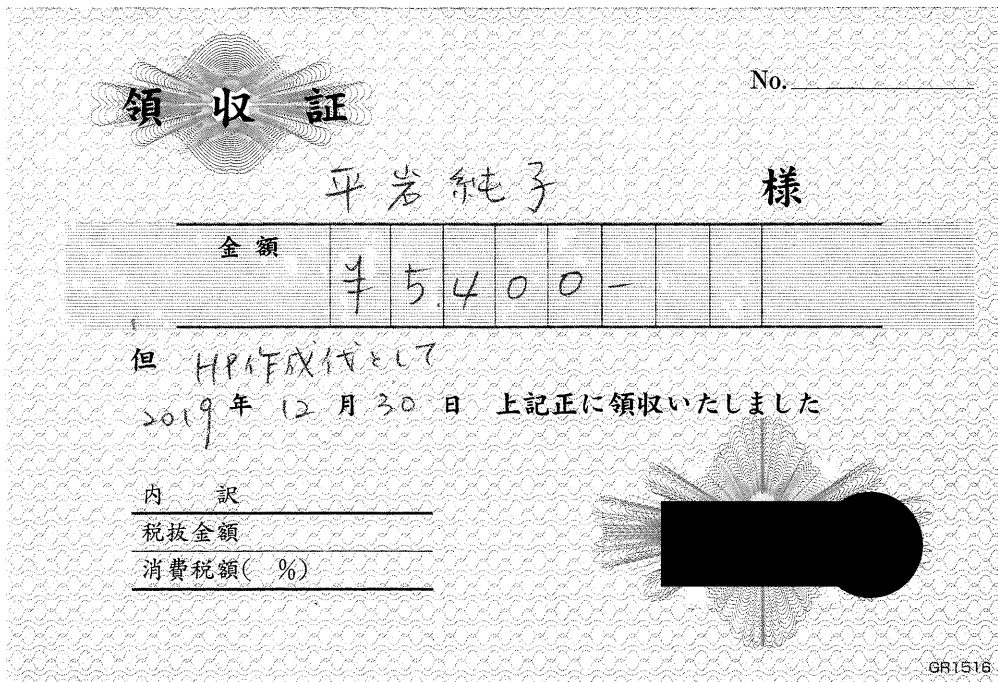 領収証
No.
平岩純子 様
金額 ¥5,400-
但 HP作成代として
2019年12月30日 上記正に領収いたしました
内 訳
税抜金額
消費税額( %)
GR1516